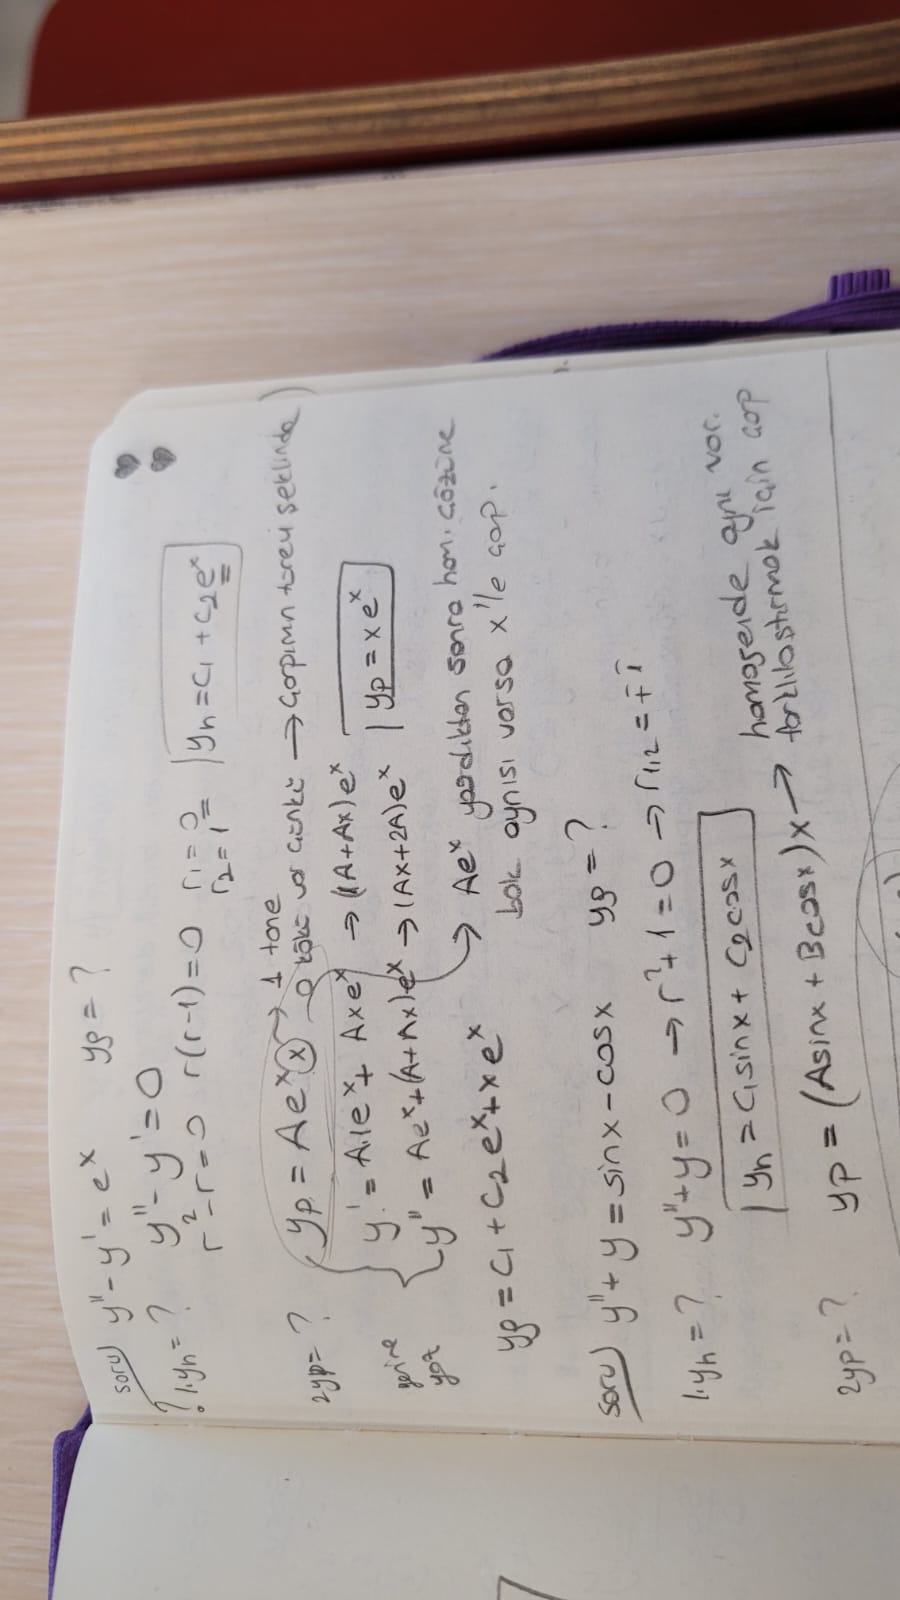 soru) y'' - y' = e^x yg = ?
? 1. yh = ? y'' - y' = 0
r^2 - r = 0 r(r-1) = 0 r1 = 0 r2 = 1 yh = c1 + c2 e^x
2 yp = ? yp = Ae^x x → 1 tane
0 kökü var çünkü → çarpımın türevi şeklinde)
y' = A.1e^x + Axe^x → (1A+Ax)e^x yp = xe^x
yerine yaz y'' = Ae^x + (A+Ax)e^x → (Ax+2A)e^x
→ Ae^x yazdıktan sonra hom. çözüne
bak aynısı varsa x'le çarp.
yg = c1 + c2 e^x + xe^x
soru) y'' + y = sinx - cosx yg = ?
1. yh = ? y'' + y = 0 → r^2 + 1 = 0 → r1,2 = ∓ i
yh = c1 sinx + c2 cosx
2 yp = ? yp = (Asinx + Bcosx)x → homogende aynı var.
farklılaştırmak için çarp